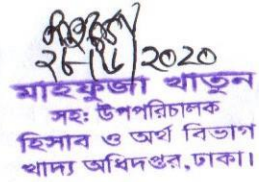 ২৮/৮/2020
মাহফুজা খাতুন
সহঃ উপপরিচালক
হিসাব ও অর্থ বিভাগ
খাদ্য অধিদপ্তর, ঢাকা।